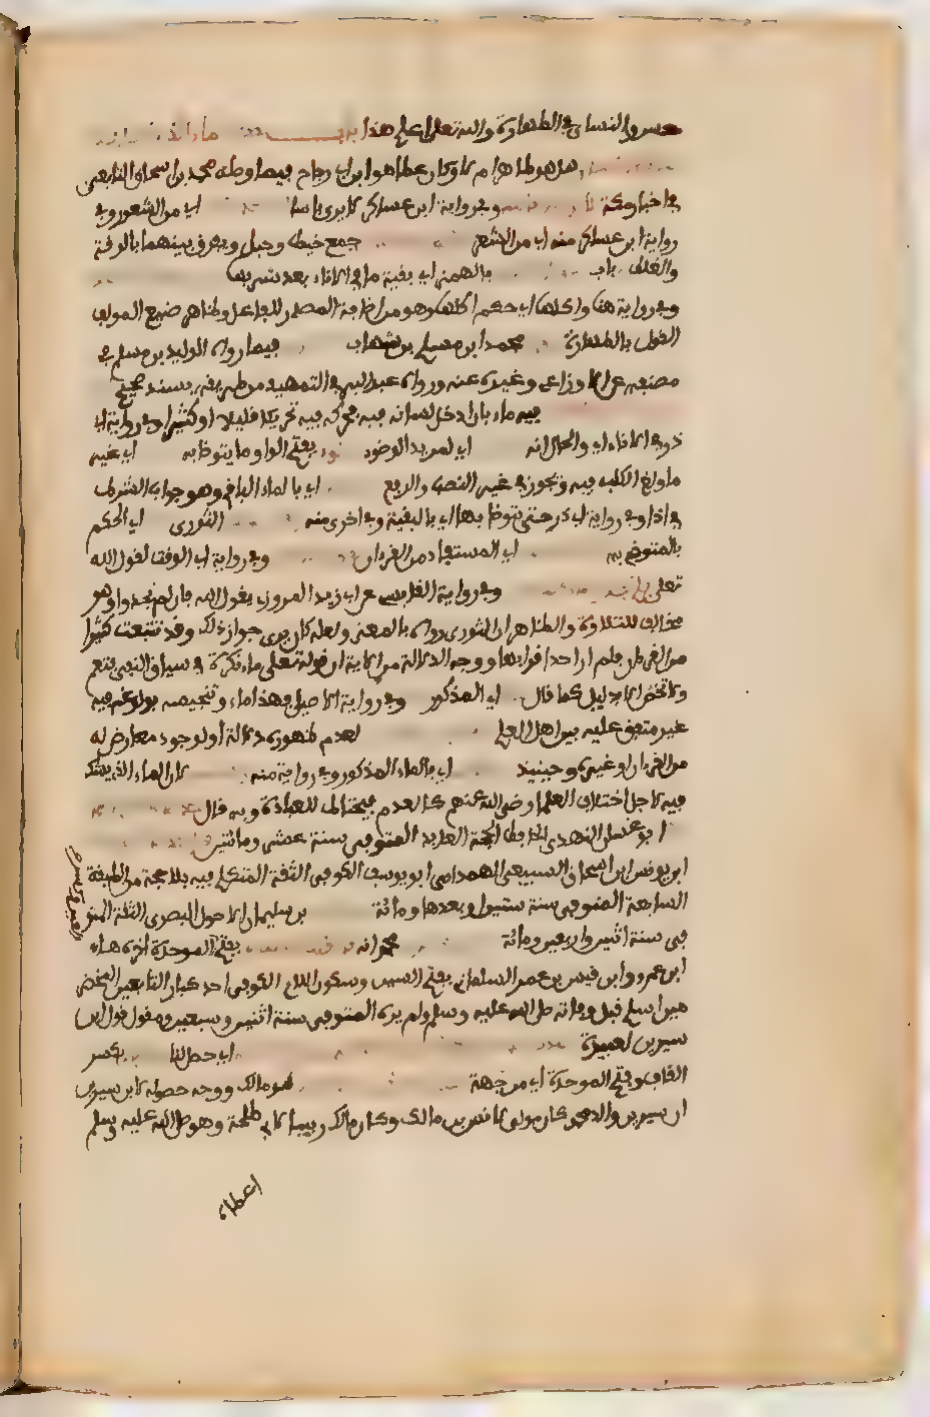 والنساي في الطهارة والله تعلى اعلم هذا
هل هو طاهر ام لا وكان عطا هو ابن ابي رباح فيما وصله محمد بن اسحاق
في اخبار مكة وفي رواية ابن عساكر لا يرى باسا اي من الشعور وفي
رواية ابن عساكر منه اي من الشعر جمع خيط وحبل ويفرق بينهما بالرقة
والغلظ باب بالهمز اي بقية ما في الاناء بعد شربها
وفي رواية هنا واكلها اي حكم اكلها وهو من اضافة المصدر للفاعل وظاهر صنيع المولف
القول بالطهارة محمد ابن مسلم بن شهاب فيما رواه الوليد بن مسلم في
مصنفه عن الاوزاعي وغيره عنه ورواه عبد البر في التمهيد من طريقه بسند صحيح
فيه ماء بان ادخل لسانه فيه فحركه فيه تحريكا قليلا او كثيرا وفي رواية
في الاناء اي والحال انه اي لمريد الوضوء بفتح الواو ما يتوضا به اي غير
ما ولغ الكلب فيه ويجوز في غير النصب والرفع اي بالماء الباقي وهو جواب الشرط
في اذا وفي رواية اي ذر حتى يتوضا بها اي بالبقية وفي اخرى منه الثوري اي الحكم
بالمتوضي به اي المستفاد من القران وفي رواية ابي الوقت لقول الله
تعلى وفي رواية القابسي عن ابي زيد المروزي يقول الله فان لم تجدوا وهو
مخالف للتلاوة والظاهر ان الثوري رواه بالمعنى ولعله كان يرى جواز ذلك وقد تتبعت كثيرا
من القران فلم ار احدا قرا بها ووجه الدلالة من الاية ان قوله تعلى ماء نكرة في سياق النفي فتعم
ولا تخص الا بدليل كما قال اي المذكور وفي رواية الاصيلي فهذا ماء وتنجيسه بولوغه فيه
غير متفق عليه بين اهل العلم لعدم ظهور دلالة او لوجود معارض له
من القران او غيره وحينيذ اي بالماء المذكور وفي رواية منه لان الماء الذي يشك
فيه لاجل اختلاف العلما رضي الله عنهم كالعدم فيحتاط للعبادة وبه قال
ابو غسان النهدي الحافظ الحجة العابد المتوفى سنة عشر ومائتين
ابن يونس ابن اسحاق السبيعي الهمداني ابو يوسف الكوفي الثقة المتكلم فيه بلا حجة من الطبقة
السابعة المتوفى سنة ستين او بعدها ومائة بن سليمان الاحول البصري الثقة المتو
في سنة اثنين واربعين ومائة محمد انه بفتح الموحدة اخره هاء
ابن عمرو وابن قيس بن عمر السلماني بفتح السين وسكون اللام الكوفي احد كبار التابعين المخضر
مين اسلم قبل وفاته صلى الله عليه وسلم ولم يره المتوفى سنة اثنين وسبعين ومقول قول ابن
سيرين لعبيدة اي حصل لنا بكسر
القاف وفتح الموحدة اي من جهة هو مالك ووجه حصوله لابن سيرين
ان سيرين والد محمد كان مولى لانس بن مالك وكان مالك ربيبا لابي طلحة وهو صلى الله عليه وسلم
اعطاه